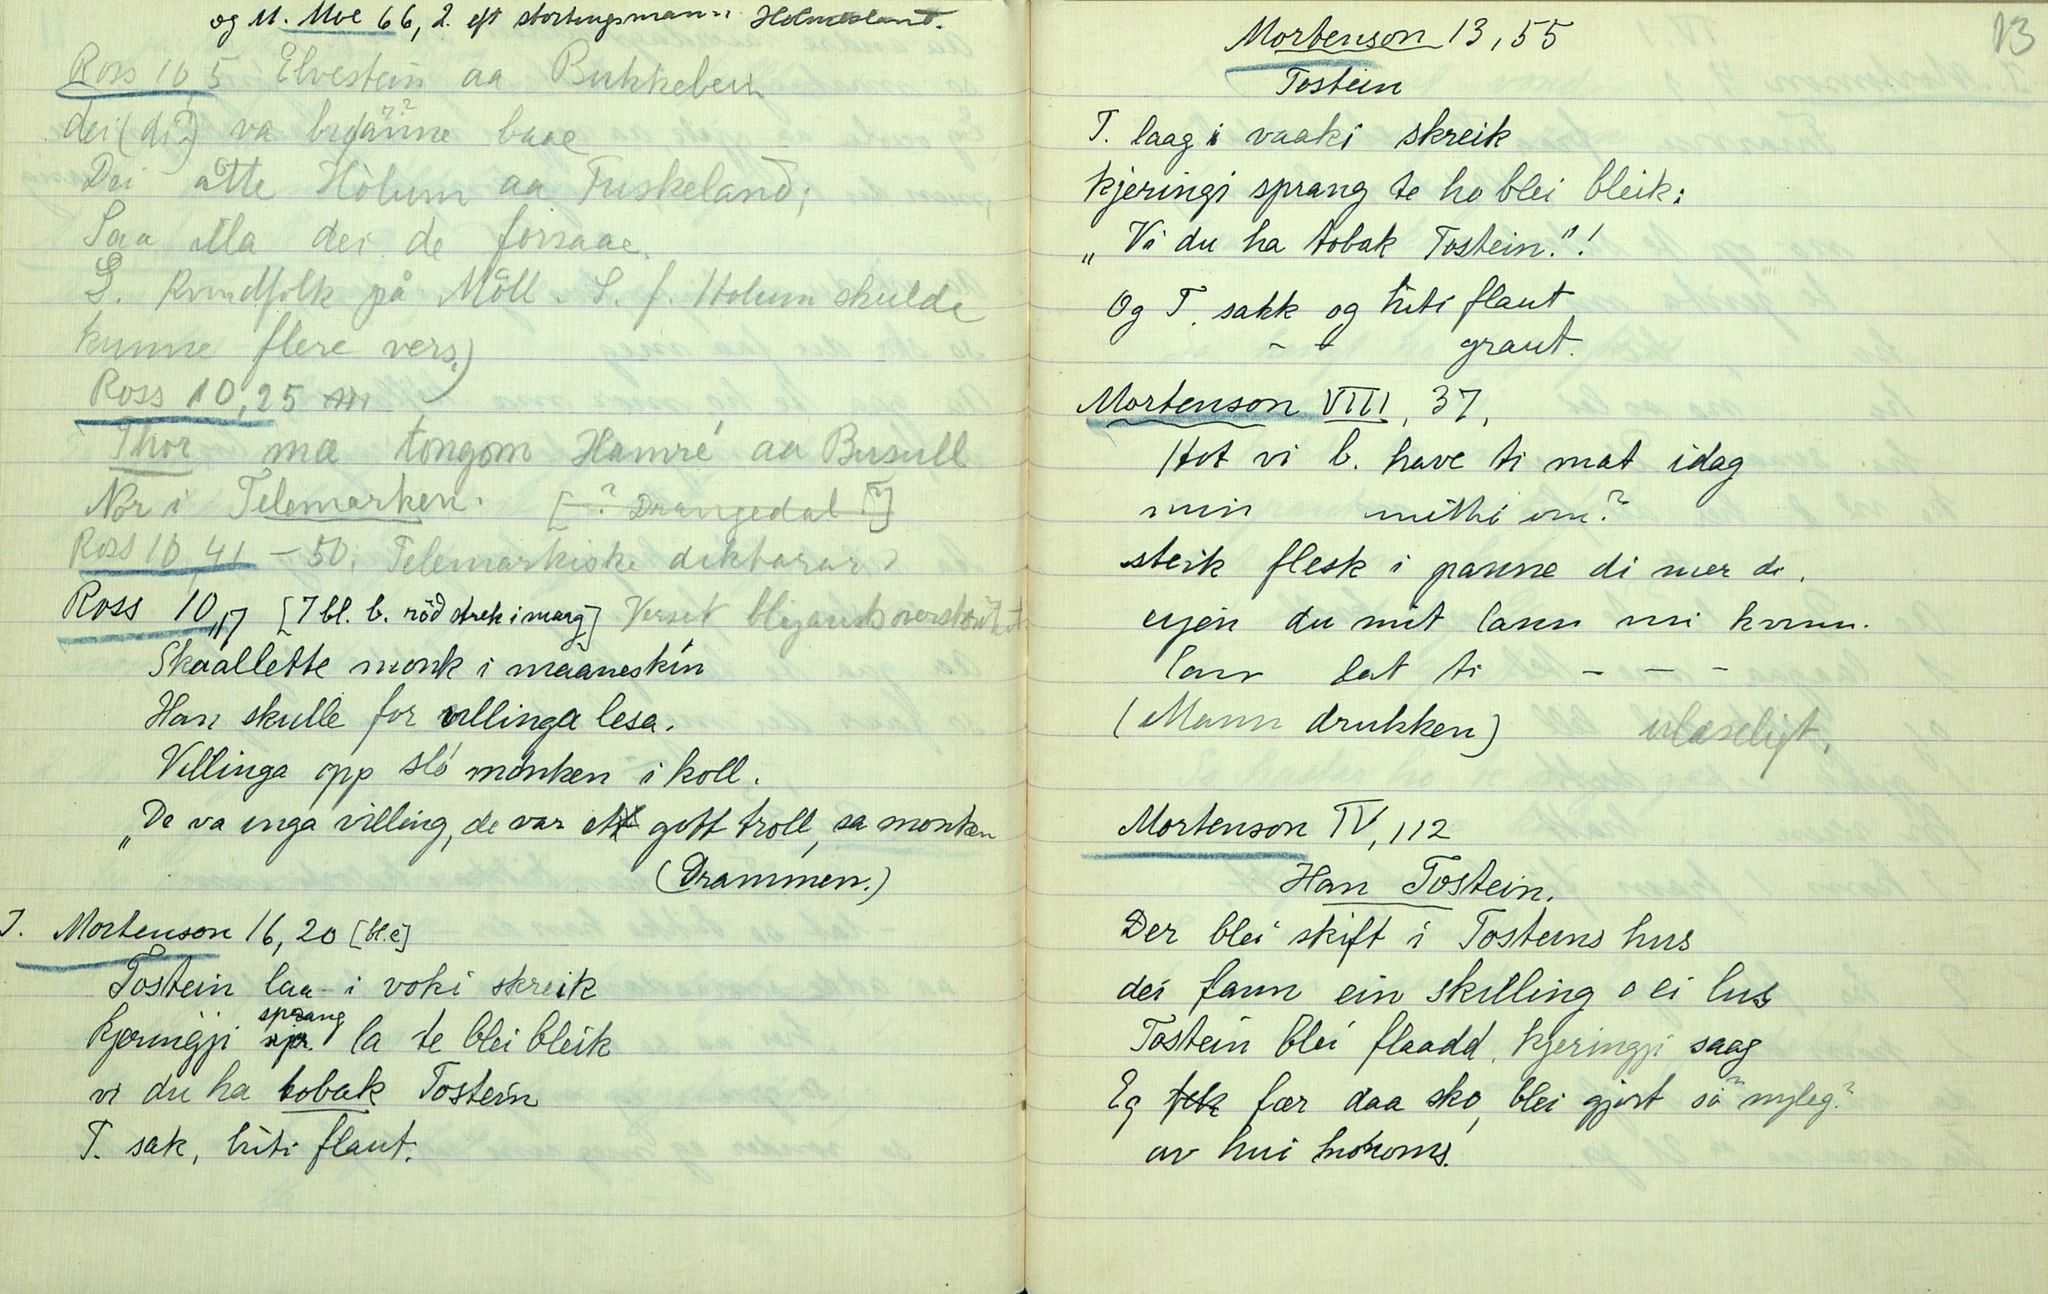 og M. Moe 66, 2. eft stortingsmann Holmesland.
Ross 10,5 Elvestein aa Bukkebein
dei (di?) va brøanne baae
Dei åtte Hòlum aa Tuskeland;
Saa illa dei de forsaae.
S. kvindfolk på Mòll. S. f. Holum skulde
kunne flere vers.)
Ross 10,25 m
Thor mæ tongom Hamre aa Busull
Nor i Telemarken. [? Drangedal ?]
Ross 10,41 - 50. Telemarkiske diktarar
Ross 10,117 [7 bl. b. röd strek i marg] Verset blyants overströket
Skaallette monk i maaneskin
Han skulle for villinga lesa.
Villinga opp sló monken i koll.
"De va inga villing, de var ett gott troll, sa monken
(Drammen.)
I. Mortenson 16, 20 [bl. c]
Tostein laa i voki skreik
kjeringji sprang la te blei bleik
vi du ha tobak Tostein
T. sak, lüti flaut.
13
Mortenson 13, 55
Tostein
T. laag i vaaki skreik
kjeringi sprang te ho blei bleik:
"Vi du ha tobak Tostein."!
Og T. sakk og lüti flaut
- - graut.
Mortenson VIII, 37,
Hot vi b. have ti mat idag
min mitthi om?
steik flesk i panne di mer di.
eyen du mit lann mi konn.
lann lat ti - - -
(Mann drukken) ulæseligt.
Mortenson IV, 112
Han Tostein.
Der blei skift i Tosteins hus
dei fann ein skilling o ei lus
Tostein blei flaadd, kjeringji saag
Eg fær daa sko, blei gjort så? nyleg?
av hui honoms.